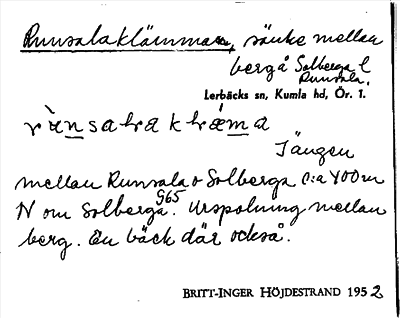 Runsalaklämman, sänke mellan
berg å Solberga l
Runsala.
Lerbäcks sn, Kumla hd, Ör. l.
Tängen
mellan Runsala o Solberga c:a 400 m
N om Solberga G65. Urspolning mellan
berg. En bäck där också.
BRITT-INGER HÖJDESTRAND 1952